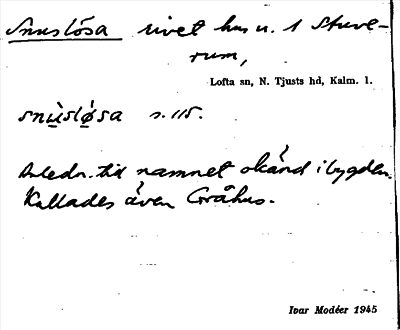 Snuslösa rivet hus u. 1 Stuve-
rum,
Lofta sn, N. Tjusts hd, Kalm. l.
snùslǿsa s. 115.
Anledn. till namnet okänd i bygden.
Kallades även Gråhus.
Ivar Modéer 1945